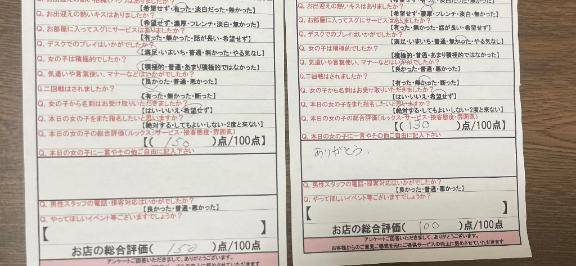 Q. お出迎えの熱いキスはありましたか?
【希望せず・有った・淡白だった・無かった】
Q. お部屋に入ってスグにサービスはありましたか?
【有った・無かった・話が長い・希望せず】
Q. デスクでのプレイはいかがでしたか?
【満足・いまいち・普通・無かった・やる気なし】
Q. 女の子は積極的でしたか?
【積極的・普通・あまり積極的ではなかった】
Q. 気遣いや言葉使い、マナーなどはいかがでしたか?
【良かった・普通・悪かった】
Q. 二回戦はされましたか?
【有った・無かった・断った】
Q. 女の子から名刺はお受け取りいただきましたか?
【はい・いいえ・希望せず】
Q. 本日の女の子をまた指名したいと思いますか?
【絶対する・してもよい・しない・2度と来ない】
Q. 本日の女の子の総合評価(ルックス・サービス・接客態度・雰囲気)
【( 150 )点/100点】
Q. 本日の女の子に一言やその他ご自由に記入下さい
Q. 男性スタッフの電話・接客対応はいかがでしたか?
【良かった・普通・悪かった】
Q. やってほしいイベント等ございますでしょうか?
【
】
お店の総合評価( 150 )点/100点
アンケートご回答いただきまして、ありがとうございます。
【希望せず・濃厚・フレンチ・淡白・無かった】
Q. お部屋に入ってスグにサービスはありましたか?
【有った・無かった・話が長い・希望せず】
Q. デスクでのプレイはいかがでしたか?
【満足・いまいち・普通・無かった・やる気なし】
Q. 女の子は積極的でしたか?
【積極的・普通・あまり積極的ではなかった】
Q. 気遣いや言葉使い、マナーなどはいかがでしたか?
【良かった・普通・悪かった】
Q. 二回戦はされましたか?
【有った・無かった・断った】
Q. 女の子から名刺はお受け取りいただきましたか?
【はい・いいえ・希望せず】
Q. 本日の女の子をまた指名したいと思いますか?
【絶対する・してもよい・しない・2度と来ない】
Q. 本日の女の子の総合評価(ルックス・サービス・接客態度・雰囲気)
【( 130 )点/100点】
Q. 本日の女の子に一言やその他ご自由に記入下さい
ありがとう。
Q. 男性スタッフの電話・接客対応はいかがでしたか?
【良かった・普通・悪かった】
Q. やってほしいイベント等ございますでしょうか?
【
】
お店の総合評価( 100 )点/100点
アンケートご回答いただきまして、ありがとうございます。